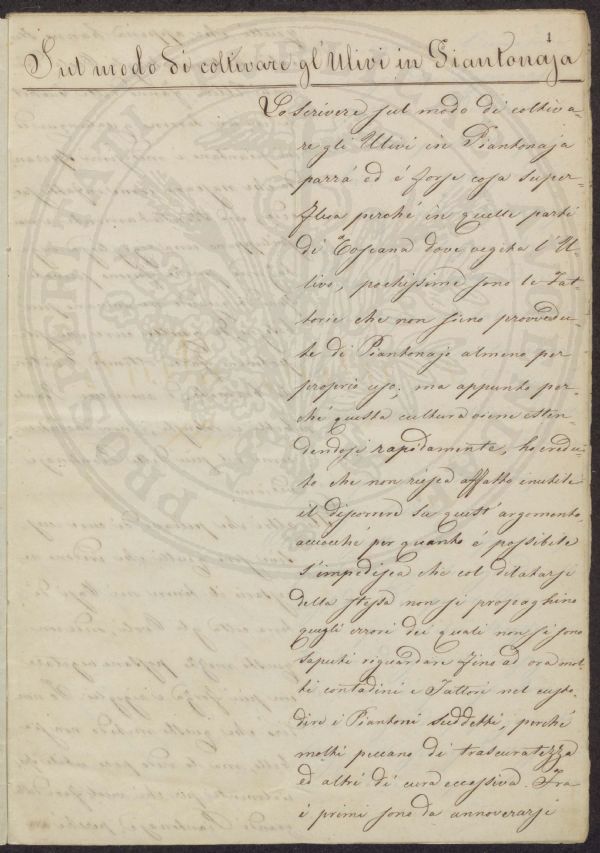 1
Sul modo di coltivare gl'Ulivi in Piantonaja
Lo scrivere sul modo di coltiva-
re gli Ulivi in Piantonaja
parrá ed é forse cosa super-
flua perché in quelle parti
di Toscana dove vegita l'U-
livo, pochissime sono le Fat-
torie che non sieno provvedu-
te di Piantonaje almeno per
proprio uso; ma appunto per-
ché questa cultura viene esten-
dendosi rapidamente, ho credu-
to che non riesca affatto inutile
il discorrere su quest'argomento,
acciocché per quanto é possibile
s'impedisca che col dilatarsi
della stessa non si propaghino
quegli errori dei quali non si sono
saputi riguardare fino ad ora mol-
ti contadini e Fattori nel custo-
dire i Piantoni suddetti, perché
molti peccano di trascuratezza
ed altri di cura eccessiva. Fra
i primi sono da annoverarsi
PROSPERITATI